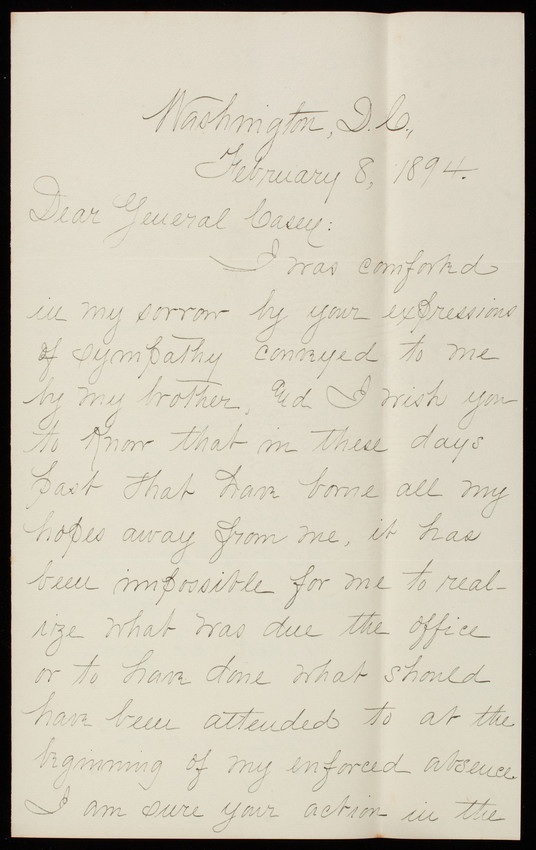 Washington, D.C.,
February 8, 1894.
Dear General Casey:
I was comforted
in my sorrow by your expressions
of sympathy conveyed to me
by my brother, and I wish you
to know that in these days
past that have borne all my
hopes away from me, it has
been impossible for me to real-
ize what was due the office
or to have done what should
have been attended to at the
beginning of my enforced absence.
I am sure your action in the